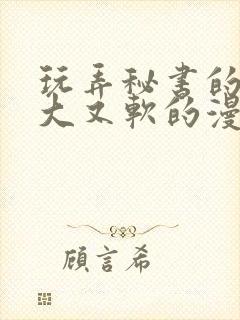 玩弄秘书的
大又軟的漫
顧言希